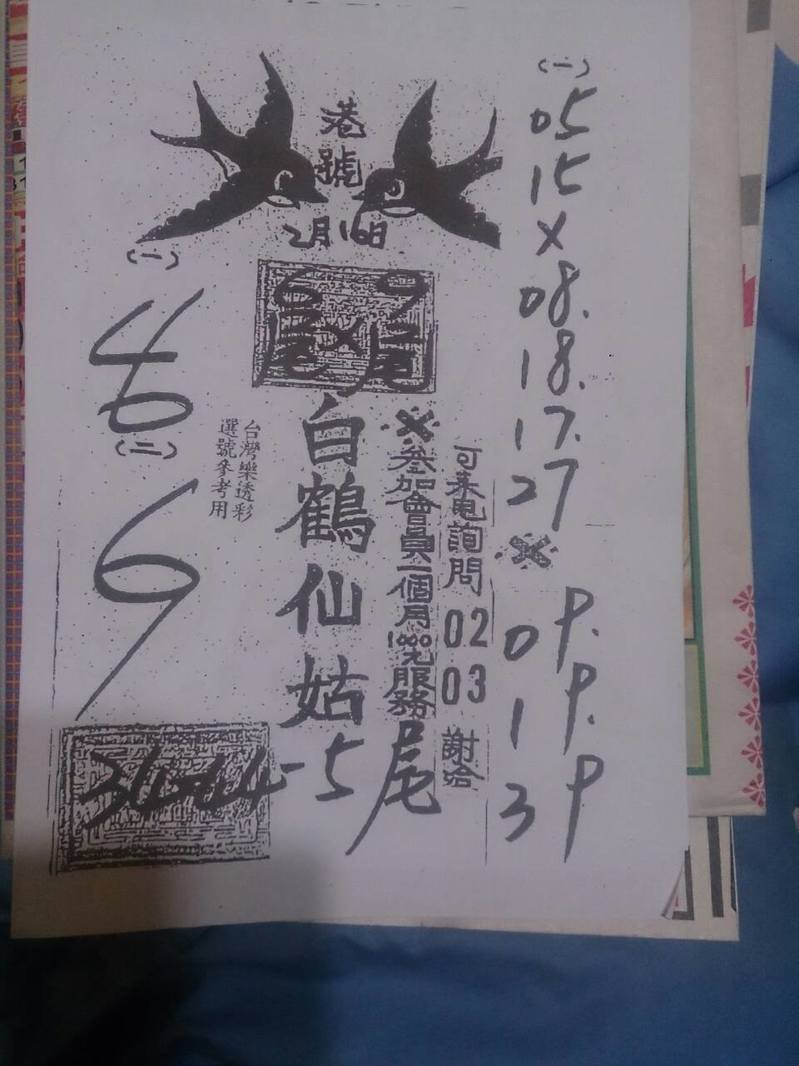 港號
2月16日
(一)
05
15
×
08.
18.
17.
27
※
09.
19.
39
可來電詢問
02
03
謝哈
※參加會員一個月1000元服務
白鶴仙姑
台灣樂透彩
選號參考用
(一)
(二)
9
34×44-5尾